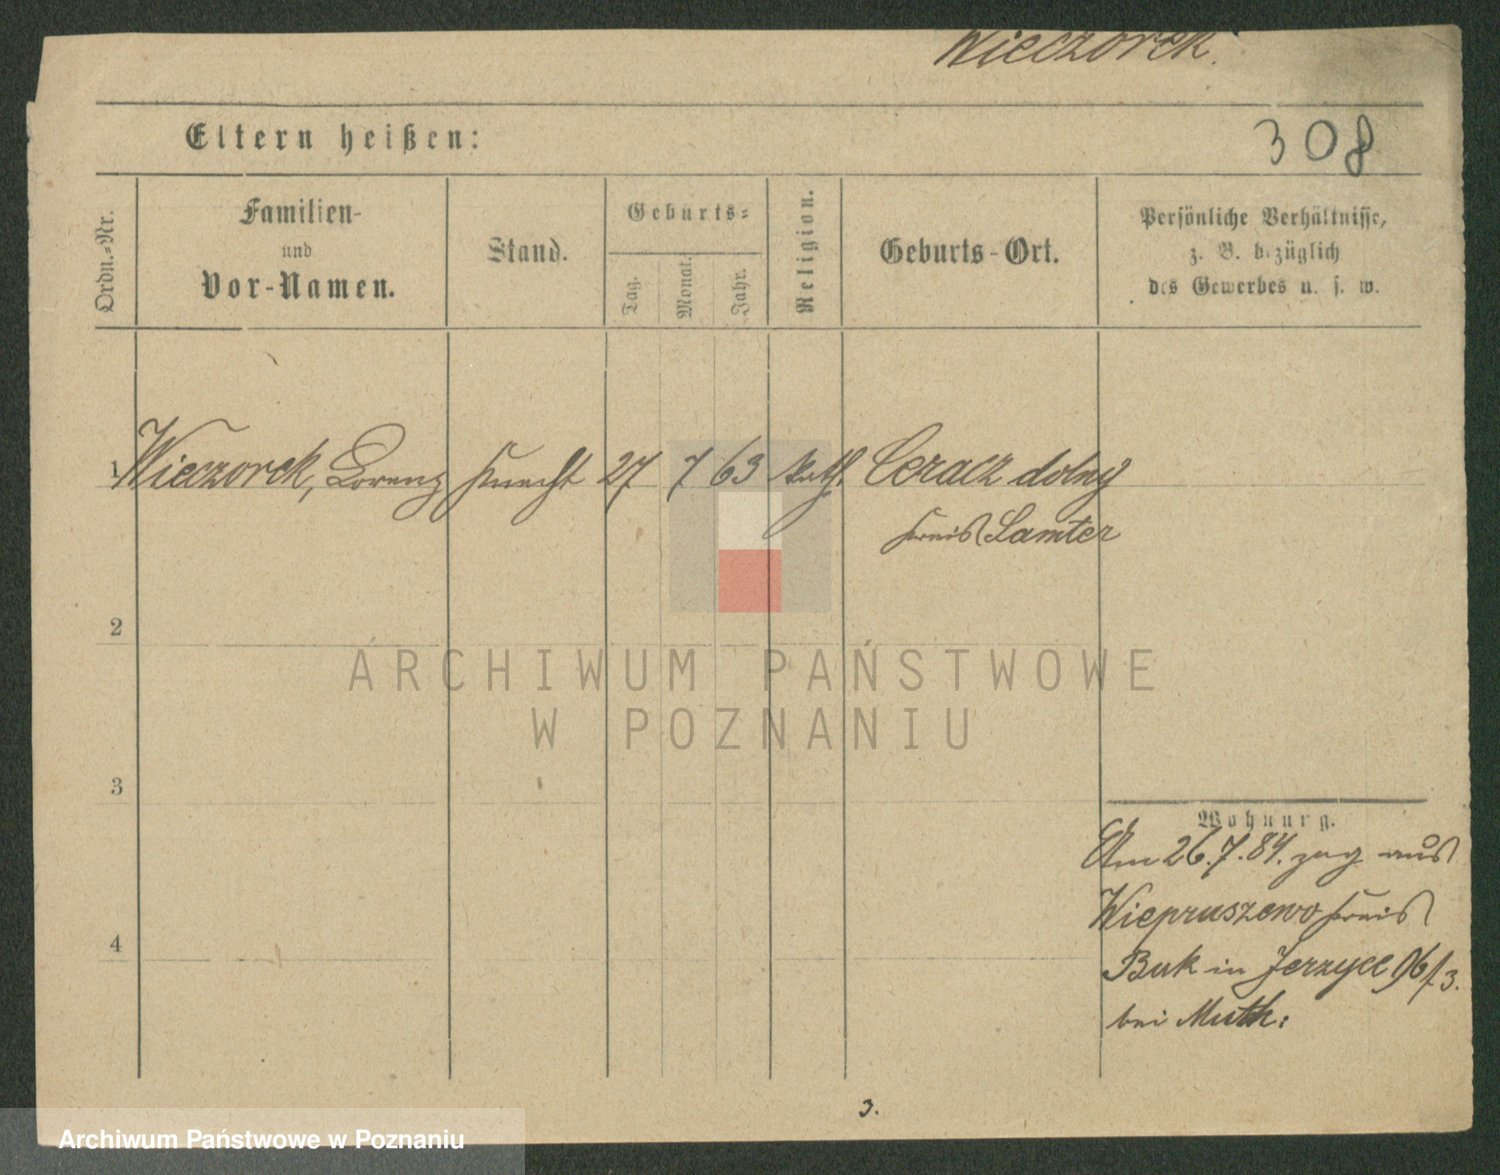 Wieczorek.
Eltern heißen:
308
Ordn.-Nr.
Familien-
und
Vor-Namen.
Stand.
Geburts-
Tag.
Monat.
Jahr.
Religion.
Geburts-Ort.
Persönliche Verhältnisse,
z. B. bezüglich
des Gewerbes u. s. w.
1 Wieczorek, Lorenz Knecht 27 7 63 kath. Ceracz dolny
Kreis Samter
2
ARCHIWUM PAŃSTWOWE
W POZNANIU
3
Wohnung.
Am 26.7.84. zog aus
Wiepruszewo Kreis
4
Buk in Jerzyce 96/3.
bei Muth:
3.
Archiwum Państwowe w Poznaniu